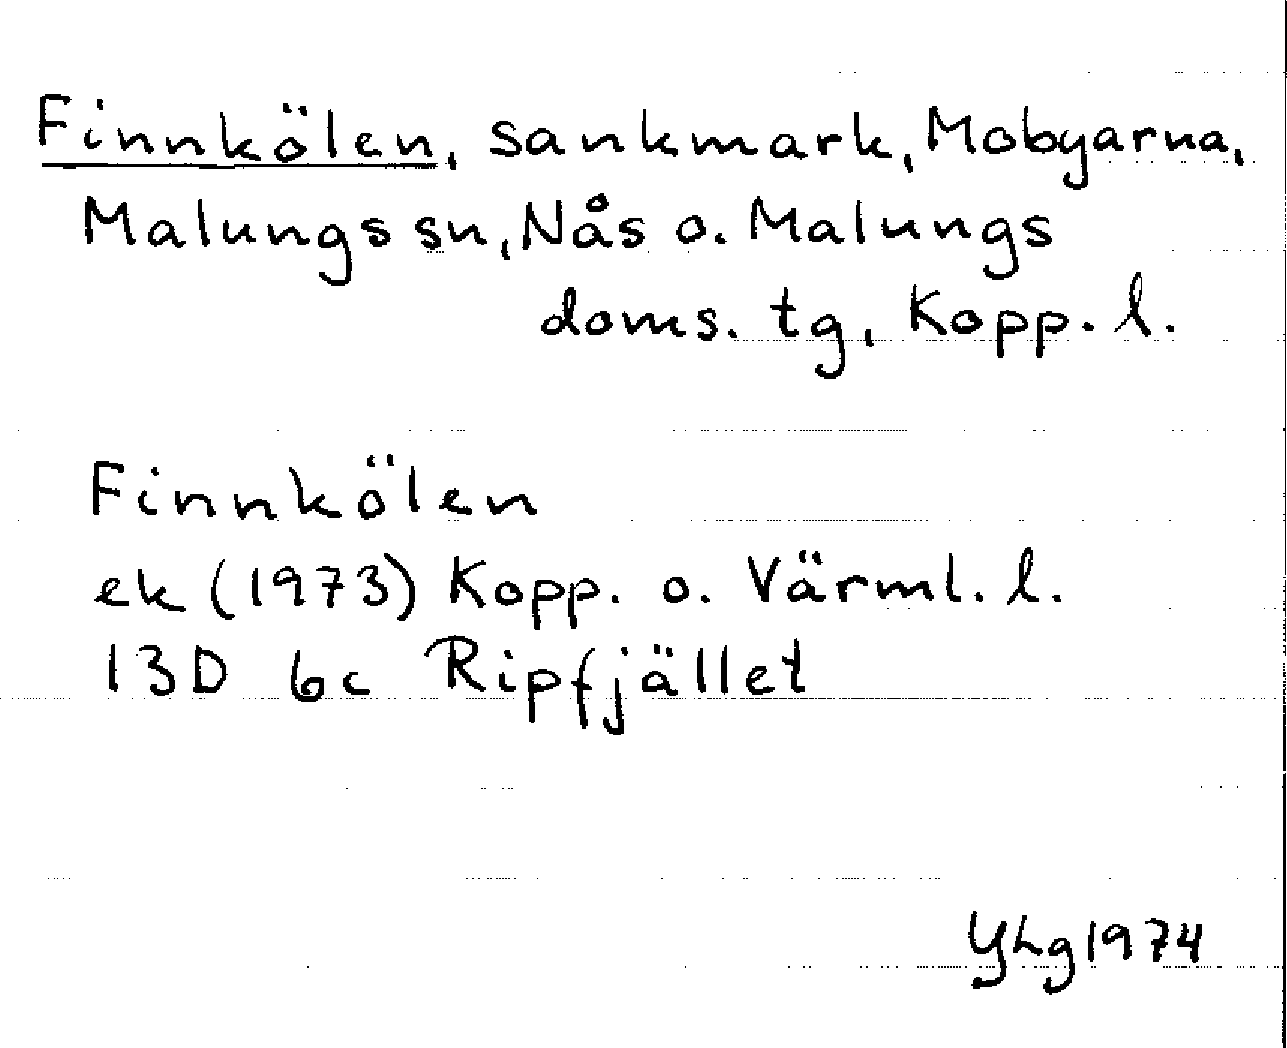 Finnkölen, sankmark, Mobyarna,
Malungs sn, Nås o. Malungs
doms. tg, Kopp. l.
Finnkölen
ek (1973) Kopp. o. Värml. l.
13D 6c Ripfjället
YLg 1974